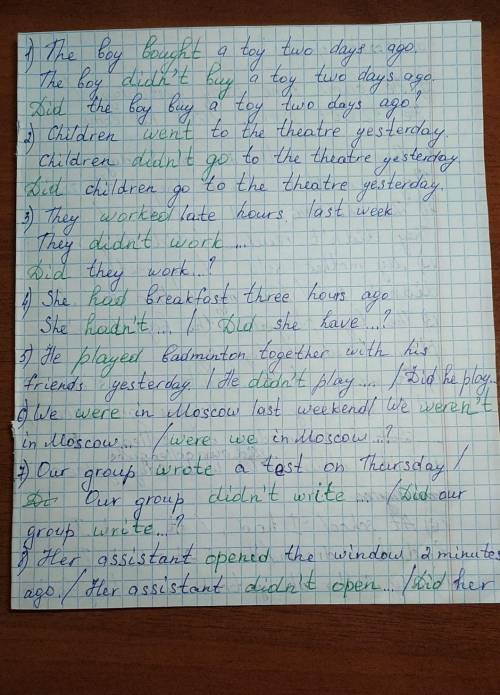 1) The boy bought a toy two days ago.
The boy didn't buy a toy two days ago.
Did the boy buy a toy two days ago?
2) Children went to the theatre yesterday.
Children didn't go to the theatre yesterday
Did children go to the theatre yesterday.
3) They worked late hours last week
They didn't work ...
Did they work...?
4) She had breakfast three hours ago
She hadn't ... / Did she have ...?
5) He played badminton together with his
friends yesterday / He didn't play.... / Did he play...
6) We were in Moscow last weekend/ We weren't
in Moscow... / were we in Moscow...?
7) Our group wrote a test on Thursday /
Our group didn't write ... / Did our
group write...?
8) Her assistant opened the window 2 minutes
ago. / Her assistant didn't open... / Did her